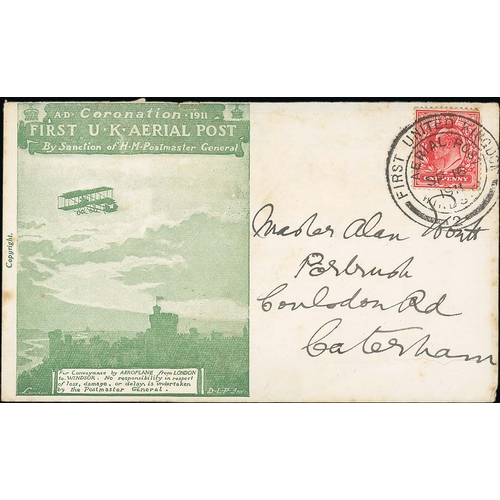 A·D· Coronation · 1911
FIRST U·K·AERIAL POST
By Sanction of H·M·Postmaster General
Copyright.
For Conveyance by AEROPLANE from LONDON
to WINDSOR. No responsibility in respect
of loss, damage, or delay, is undertaken
by the Postmaster General.
FIRST UNITED KINGDOM
AERIAL POST
ONE PENNY
2
Master Alan
Coulsdon Rd
Caterham